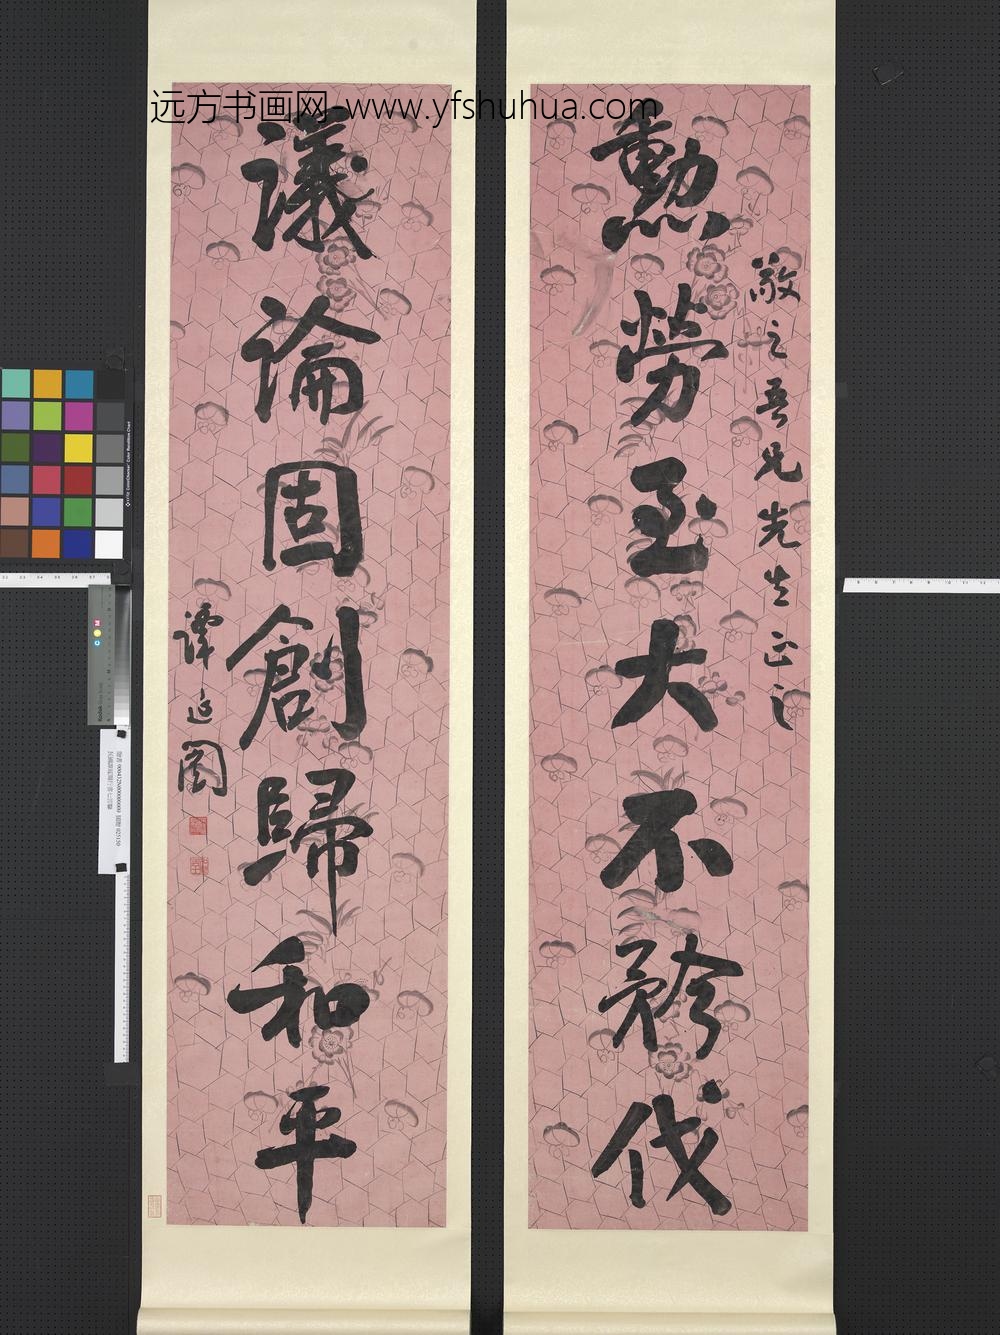 远方书画网-www.yfshuhua.com
敬之吾兄先生正之
勳勞至大不矜伐
議論固創歸和平
譚延闓